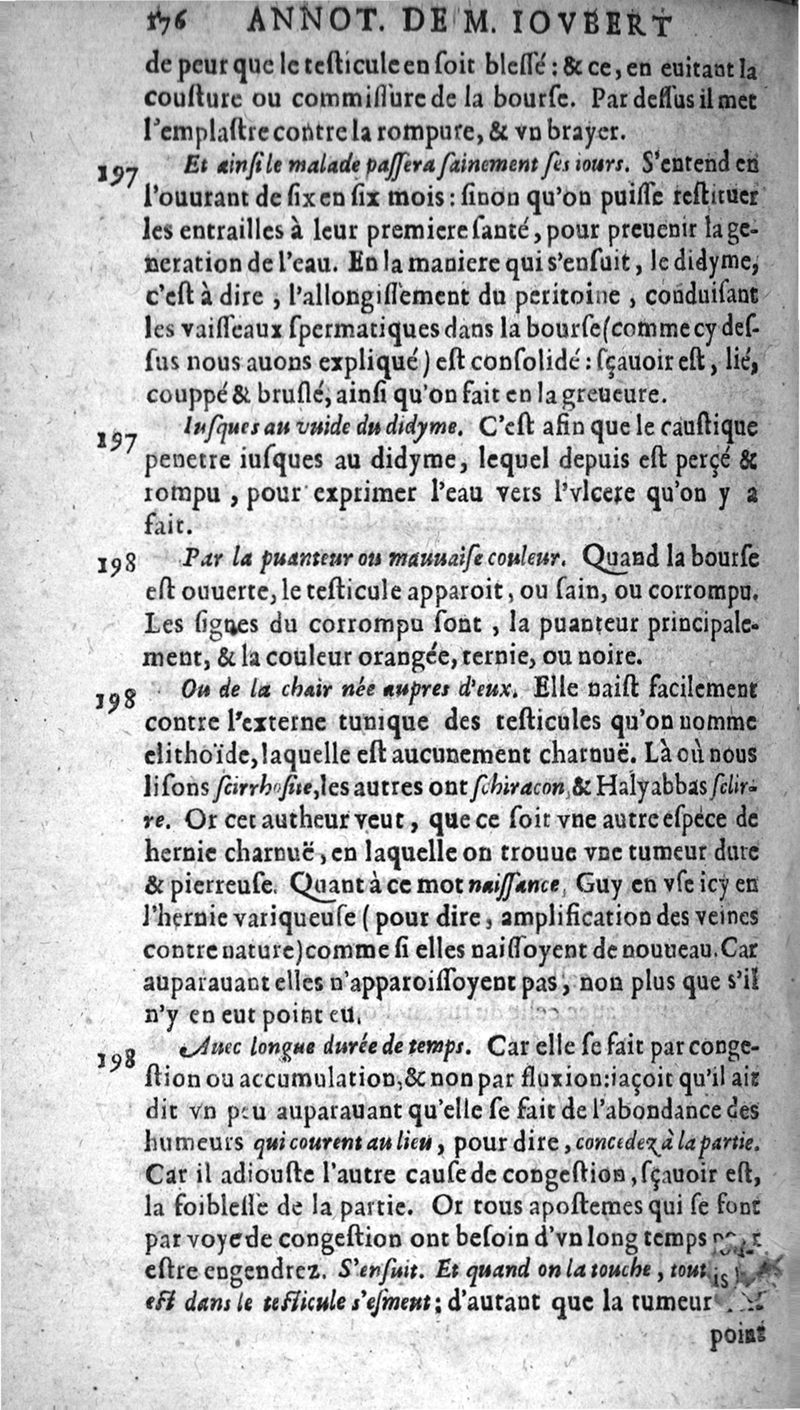 176 ANNOT. DE M. IOVBERT
de peur que le teſticule en ſoit bleſſé : & ce, en euitant la
couſture ou commiſſure de la bourſe. Par deſſus il met
l'emplaſtre contre la rompure, & vn brayer.
197 Et ainſi le malade paſſera ſainement ſes iours. S'entend en
l'ouurant de ſix en ſix mois : ſinon qu'on puiſſe reſtituer
les entrailles à leur premiere ſanté, pour preuenir la ge-
neration de l'eau. En la maniere qui s'enſuit, le didyme,
c'eſt à dire , l'allongiſſement du peritoine , conduiſant
les vaiſſeaux ſpermatiques dans la bourſe (comme cy deſ-
ſus nous auons expliqué) eſt conſolidé : ſçauoir eſt, lié,
couppé & bruſlé, ainſi qu'on fait en la greueure.
197 Iuſques au vuide du didyme. C'eſt afin que le cauſtique
penetre iuſques au didyme, lequel depuis eſt perçé &
rompu , pour exprimer l'eau vers l'vlcere qu'on y a
fait.
198 Par la puanteur ou mauuaiſe couleur. Quand la bourſe
eſt ouuerte, le teſticule apparoit, ou ſain, ou corrompu.
Les ſignes du corrompu ſont , la puanteur principale-
ment, & la couleur orangée, ternie, ou noire.
198 Ou de la chair née aupres d'eux. Elle naiſt facilement
contre l'externe tunique des teſticules qu'on nomme
elithoïde, laquelle eſt aucunement charnuë. Là où nous
liſons ſcirrhoſite, les autres ont ſchiracon, & Halyabbas ſclir-
re. Or cet autheur veut , que ce ſoit vne autre eſpéce de
hernie charnuë, en laquelle on trouue vne tumeur dure
& pierreuſe. Quant à ce mot naiſſance, Guy en vſe icy en
l'hernie variqueuſe ( pour dire, amplification des veines
contre nature) comme ſi elles naiſſoyent de nouueau. Car
auparauant elles n'apparoiſſoyent pas, non plus que s'il
n'y en eut point eu.
198 Auec longue durée de temps. Car elle ſe fait par conge-
ſtion ou accumulation, & non par fluxion: iaçoit qu'il ait
dit vn peu auparauant qu'elle ſe fait de l'abondance des
humeurs qui courent au lieu, pour dire, concedez à la partie.
Car il adiouſte l'autre cauſe de congeſtion, ſçauoir eſt,
la foibleſſe de la partie. Or tous apoſtemes qui ſe font
par voye de congeſtion ont beſoin d'vn long temps
eſtre engendrez. S'enſuit. Et quand on la touche, tout
eſt dans le teſticule s'eſment; d'autant que la tumeur
point